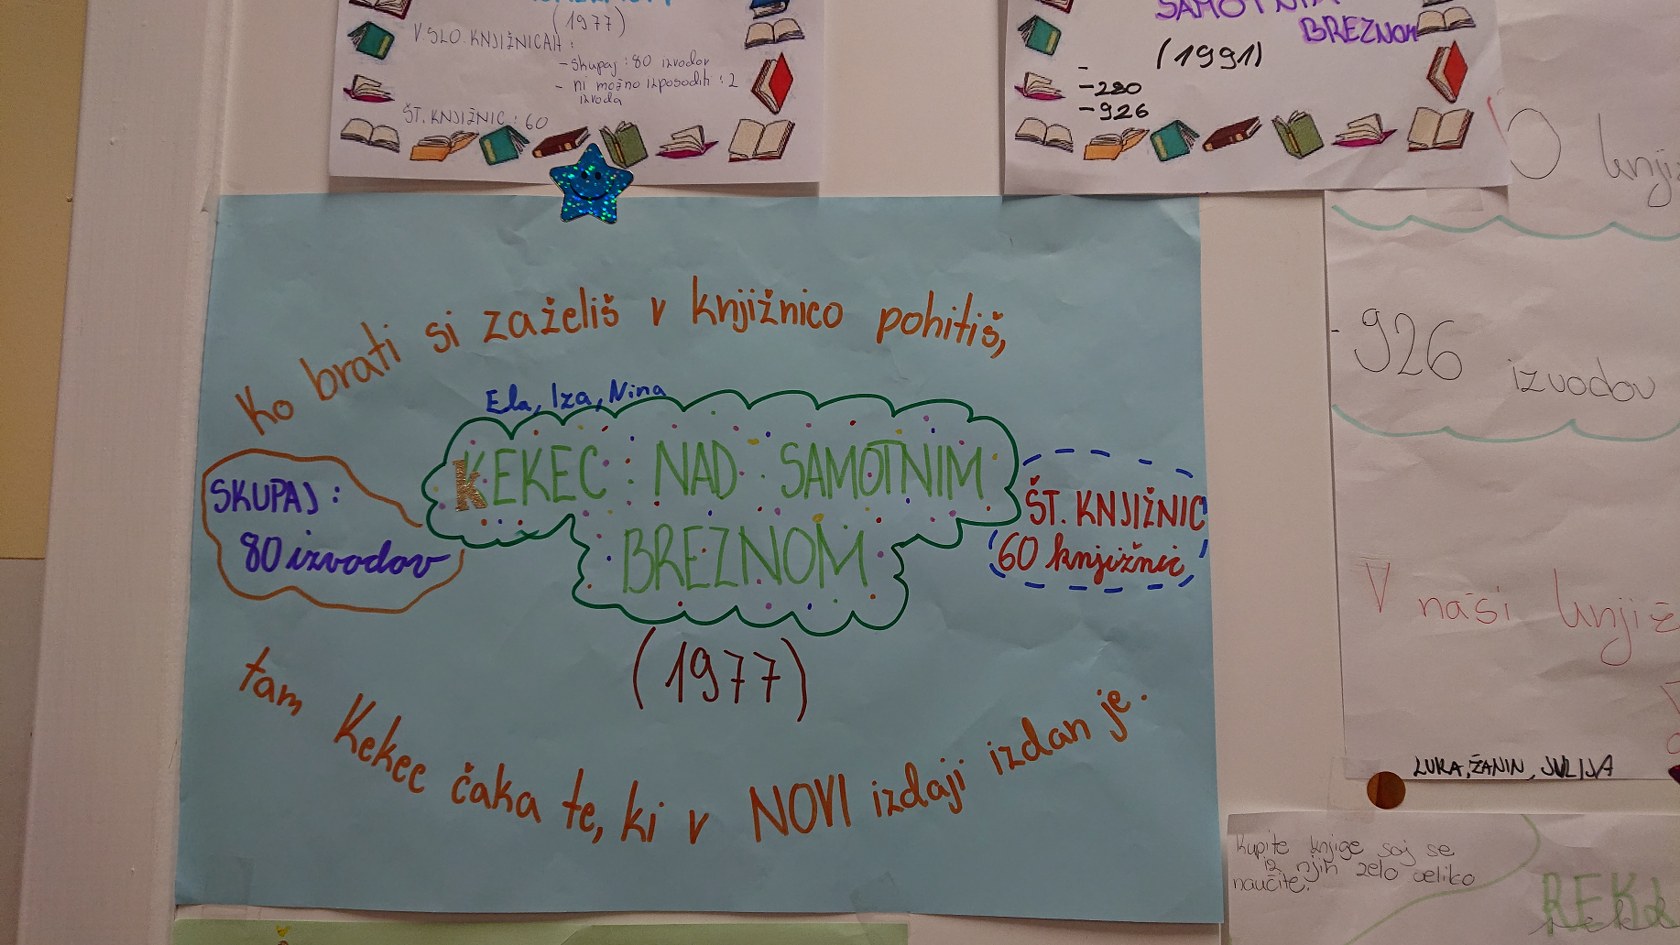 (1977)
V SLO. KNJIŽNICAH:
- skupaj: 80 izvodov
- ni možno izposoditi: 2
izvoda
ŠT. KNJIŽNIC: 60
SAMOTNIM
BREZNOM
(1991)
-
-220
-926
knji
-926 izvodov
V naši knjiž
LUKA, ŽANIN, JULIJA
Ko brati si zaželiš v knjižnico pohitiš,
Ela, Iza, Nina
KEKEC NAD SAMOTNIM
BREZNOM
(1977)
SKUPAJ:
80 izvodov
ŠT. KNJIŽNIC
60 knjižnic
tam Kekec čaka te, ki v NOVI izdaji izdan je.
Kupite knjige saj se
iz njih zelo veliko
naučite.
REKL